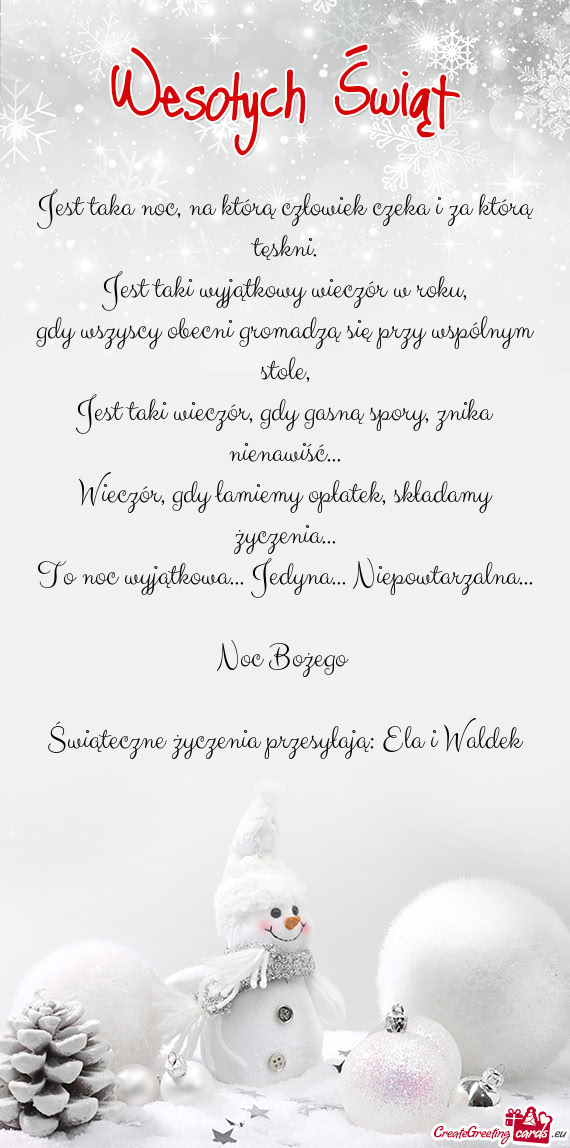 Wesołych Świąt
Jest taka noc, na którą człowiek czeka i za którą
tęskni.
Jest taki wyjątkowy wieczór w roku,
gdy wszyscy obecni gromadzą się przy wspólnym
stole,
Jest taki wieczór, gdy gasną spory, znika
nienawiść...
Wieczór, gdy łamiemy opłatek, składamy
życzenia...
To noc wyjątkowa... Jedyna... Niepowtarzalna...
Noc Bożego
Świąteczne życzenia przesyłają: Ela i Waldek
CreateGreetingcards.eu